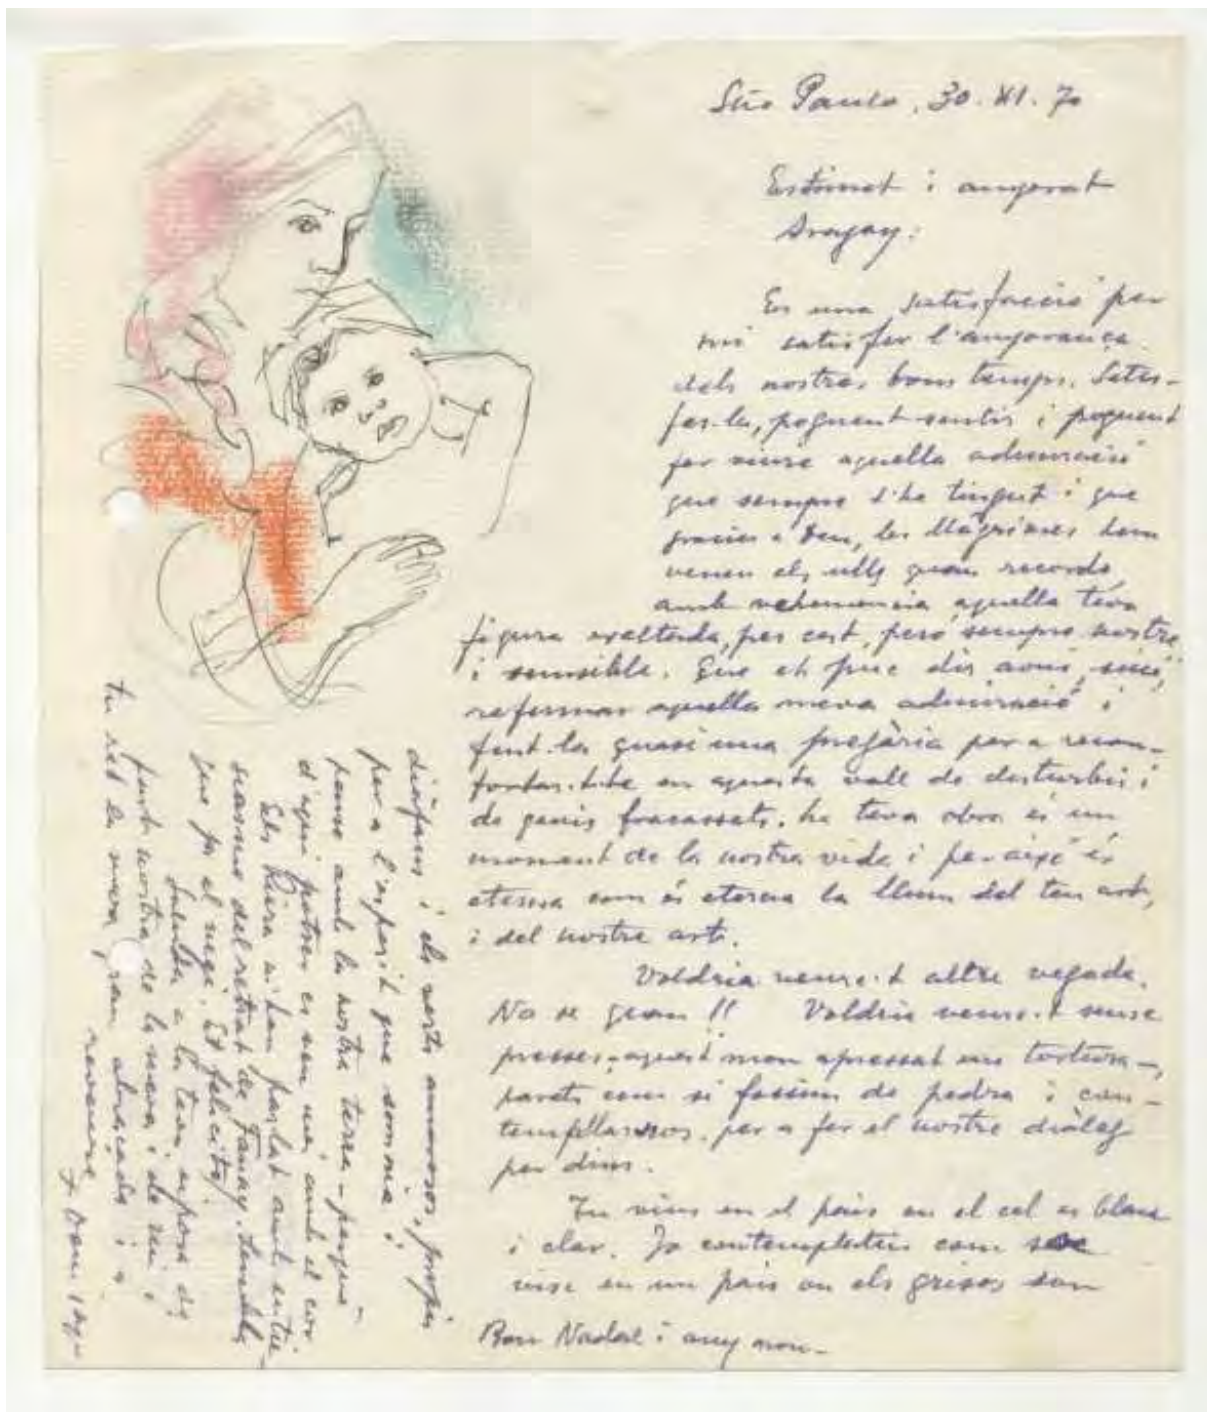 São Paulo, 30. XI. 70
Estimat i anyorat
Aragay:
Es una satisfacció per
mi satisfer l'anyorança
dels nostres bons temps. Satis-
fer-la, poguent sentir i poguent
fer viure aquella admiració
que sempre s'ha tingut i que
gracies a Deu, les llàgrimes hem
venen els ulls quan recordo
amb vehemencia aquella teva
figura exaltada, per cert, però sempre nostre
i sensible. Que et puc dir avui, sinó,
refermar aquella meva admiració i
fent-la quasi una pregària per a recon-
fortar-te en aquesta vall de disturbis i
de genis fracassats. La teva obra és un
moment de la nostra vida i per aixó és
eterna com és eterna la llum del teu art,
i del nostre art.
Voldria veure-t altre vegada.
No se quan !! Voldria veure-t sense
presses - aquest mon apressat ens tortura -,
parats com si fossim de pedra i con-
templar-nos, per a fer el nostre diàleg
per dins.
Tu vius en el pais on el cel es blau
i clar. Jo contemplatiu com
visc en un pais on els grisos son
diàfans i els verts amorosos, propis
per a l'esperit que somnia i
pensa amb la nostra terra - perquè
d'aqui potser es veu mes amb el cor
Els Riera m'han parlat amb entu-
siasme del retrat de Fanny.
que fa el negi. Et felicito.
a la teva esposa de
part nostra de la meva i de mi i
tu reb la meva gran abraçada i a
reveure
Bon Nadal i any nou-